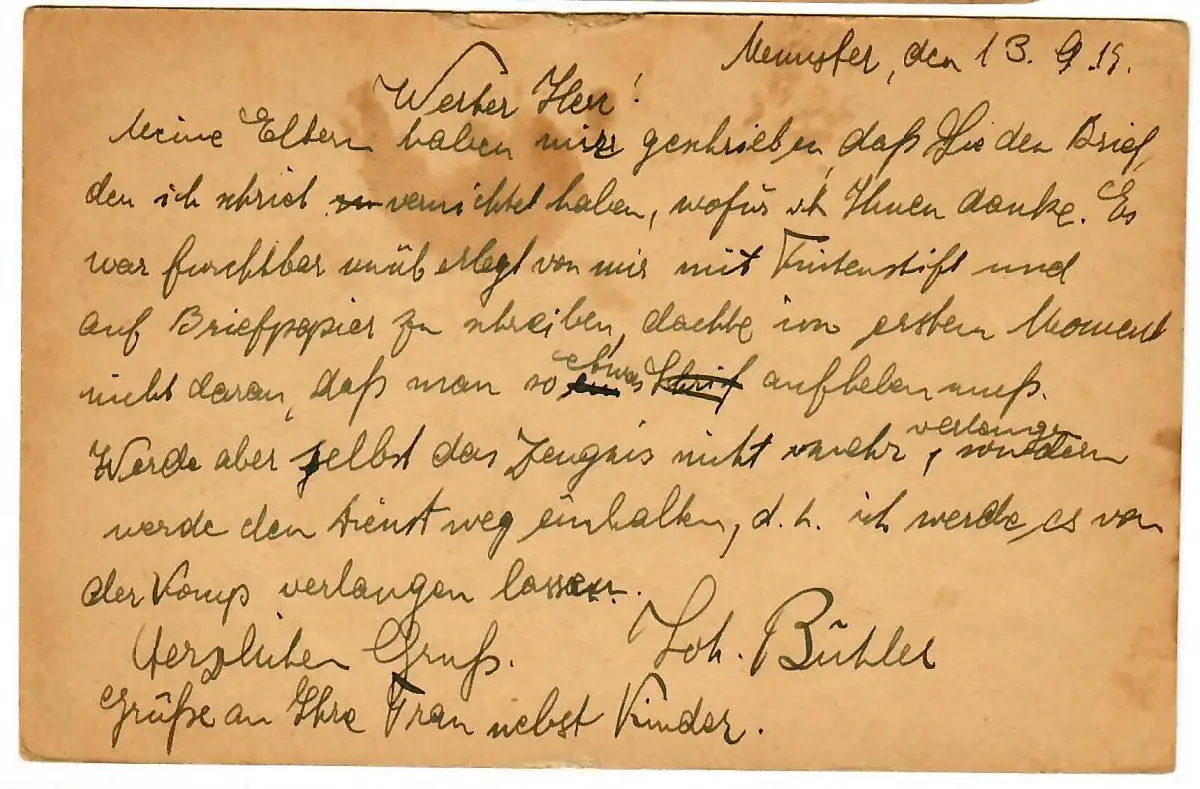 Meunster, den 13. 9. 15.
Werter Herr!
Meine Eltern haben mir geschrieben, daß Sie den Brief,
den ich schrieb vernichtet haben, wofür ich Ihnen danke. Es
war furchtbar unüberlegt von mir mit Tintenstift und
auf Briefpapier zu schreiben, dachte im ersten Moment
nicht daran, daß man so etwas aufheben muß.
Werde aber selbst das Zeugnis nicht mehr verlangen, sondern
werde den Dienstweg einhalten, d. h. ich werde es von
der Komp verlangen lassen.
Herzlichen Gruß. Joh. Bühler
Grüße an Ihre Frau nebst Kinder.